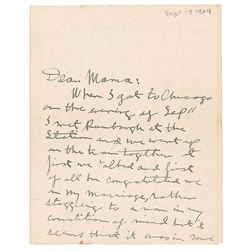 Sept 17 1909
Dear Mama:
When I got to Chicago
on the evening of Sep 11
I met at the
Station and we went up
on the train together. At
first we talked and first
of all he congratulated me
on my marriage, rather
stopping to me in my
condition of mind but it
seems that it was in some